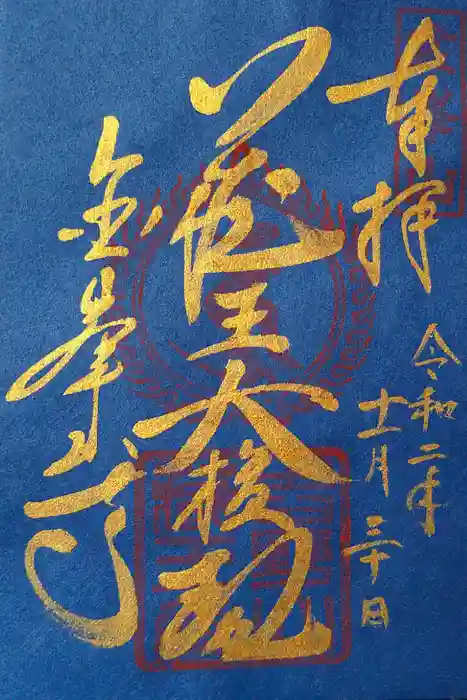 奉拝
令和二年
十一月三十日
蔵王大権現
金峯山寺